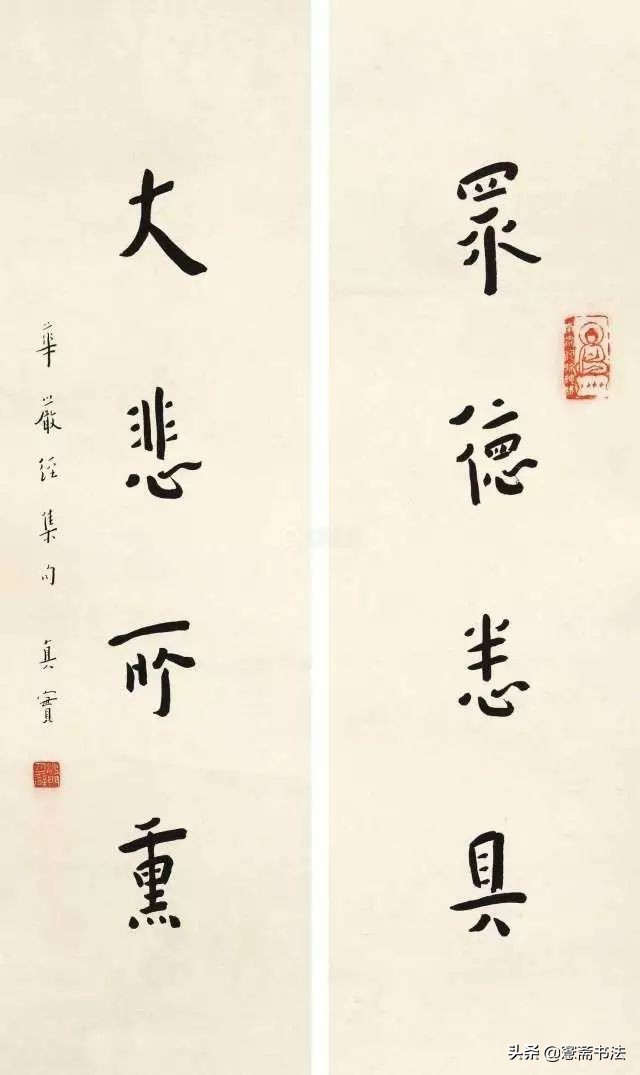 眾德悉具
大悲所熏
華嚴經集句 真實
头条@窓斋书法